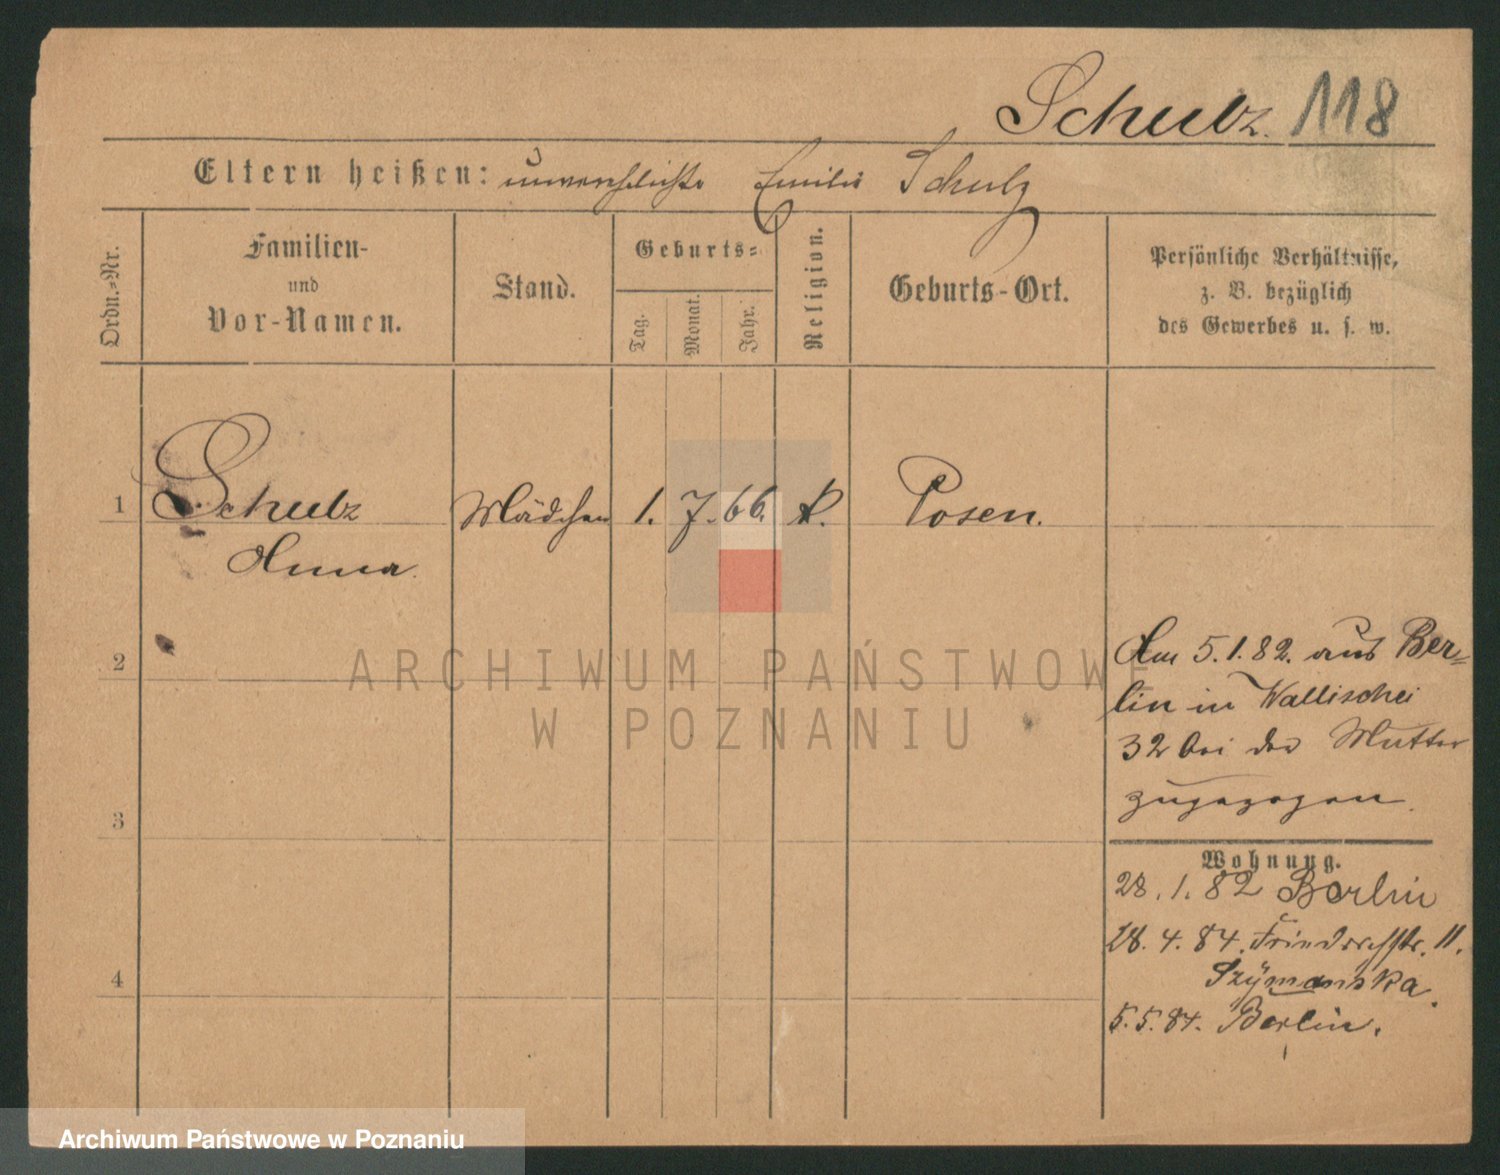 Schulz. 118
Eltern heißen: unverehelichte Emilie Schulz
Ordn.-Nr.
Familien-
und
Vor-Namen.
Stand.
Geburts-
Tag.
Monat.
Jahr.
Religion.
Geburts-Ort.
Persönliche Verhältnisse,
z. B. bezüglich
des Gewerbes u. s. w.
1 Schulz Mädchen 1. 7. 66. k. Posen.
Anna.
2
3
4
Am 5.1.82. aus Ber-
lin in Wallischei
32 bei der Mutter
zugezogen.
Wohnung.
28. 1. 82 Berlin
28. 4. 84. Friedrichstr. 11.
Szymanska.
5. 5. 84. Berlin.
ARCHIWUM PAŃSTWOWE
W POZNANIU
Archiwum Państwowe w Poznaniu